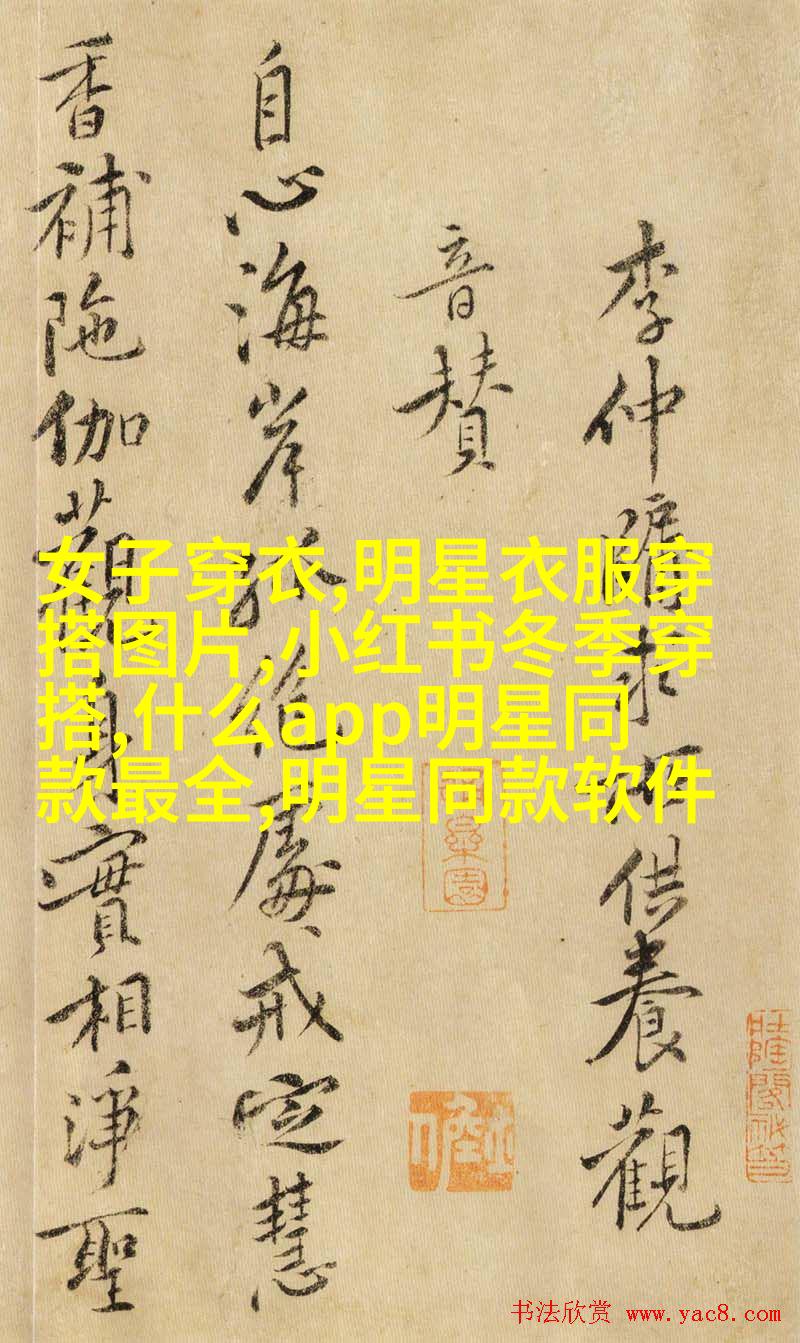 李仲牖求供養觀
音賛
自心海岸孤絶處戒定慧
香補陁伽身實相淨聖
女子穿衣,明星衣服穿
搭图片,小红书冬季穿
搭,什么app明星同
款最全,明星同款软件
书法欣赏 www.yac8.com